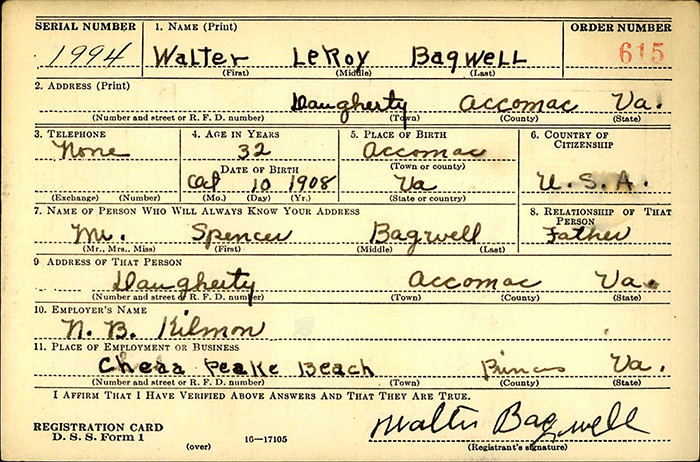 SERIAL NUMBER 1. NAME (Print) ORDER NUMBER
1994 Walter LeRoy Bagwell 615
(First) (Middle) (Last)
2. ADDRESS (Print)
Daugherty Accomac Va.
(Number and street or R. F. D. number) (Town) (County) (State)
3. TELEPHONE 4. AGE IN YEARS 5. PLACE OF BIRTH 6. COUNTRY OF CITIZENSHIP
None 32 Accomac
DATE OF BIRTH (Town or county)
10 1908 Va U.S.A.
(Exchange) (Number) (Mo.) (Day) (Yr.) (State or country)
7. NAME OF PERSON WHO WILL ALWAYS KNOW YOUR ADDRESS 8. RELATIONSHIP OF THAT PERSON
Mr. Spencer Bagwell Father
(Mr., Mrs., Miss) (First) (Middle) (Last)
9 ADDRESS OF THAT PERSON
Daugherty Accomac Va.
(Number and street or R. F. D. number) (Town) (County) (State)
10. EMPLOYER'S NAME
N. B. Kilmon
11. PLACE OF EMPLOYMENT OR BUSINESS
Chesa Peake Beach Va.
(Number and street or R. F. D. number) (Town) (County) (State)
I AFFIRM THAT I HAVE VERIFIED ABOVE ANSWERS AND THAT THEY ARE TRUE.
REGISTRATION CARD
D. S. S. Form 1 (over) 16—17105 Walter Bagwell
(Registrant's signature)